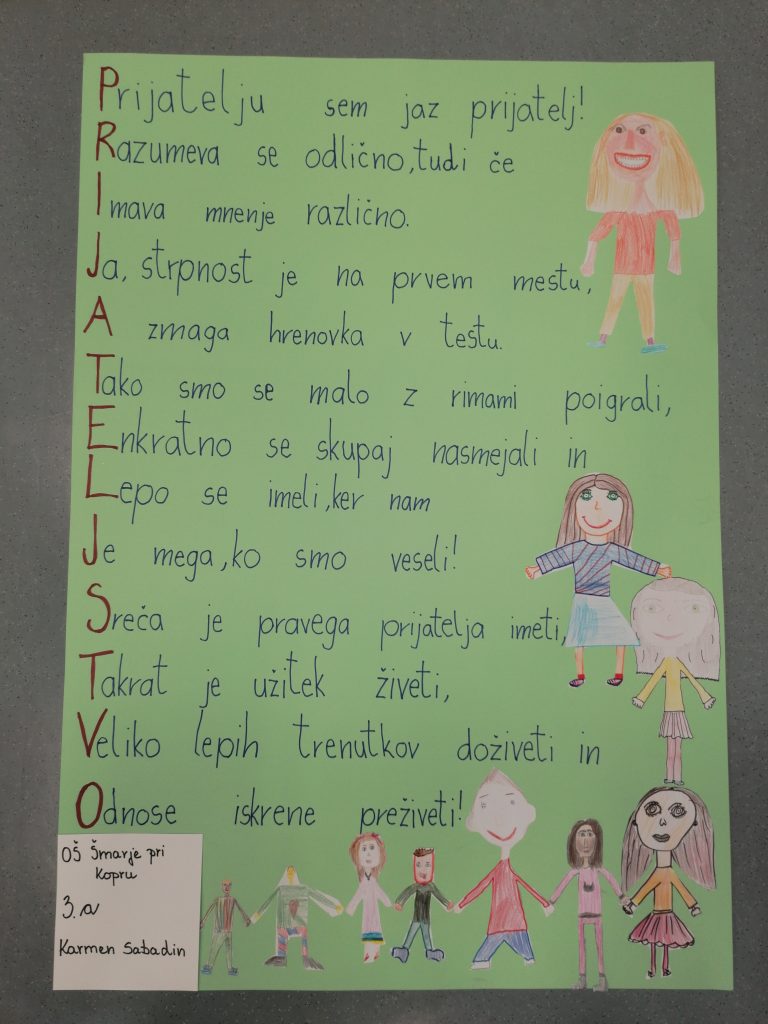 Prijatelju sem jaz prijatelj!
Razumeva se odlično, tudi če
Imava mnenje različno.
Ja, strpnost je na prvem mestu,
A zmaga hrenovka v testu.
Tako smo se malo z rimami poigrali,
Enkratno se skupaj nasmejali in
Lepo se imeli, ker nam
Je mega, ko smo veseli!
Sreča je pravega prijatelja imeti,
Takrat je užitek živeti,
Veliko lepih trenutkov doživeti in
Odnose iskrene preživeti!
OŠ Šmarje pri
Kopru
3. a
Karmen Sabadin